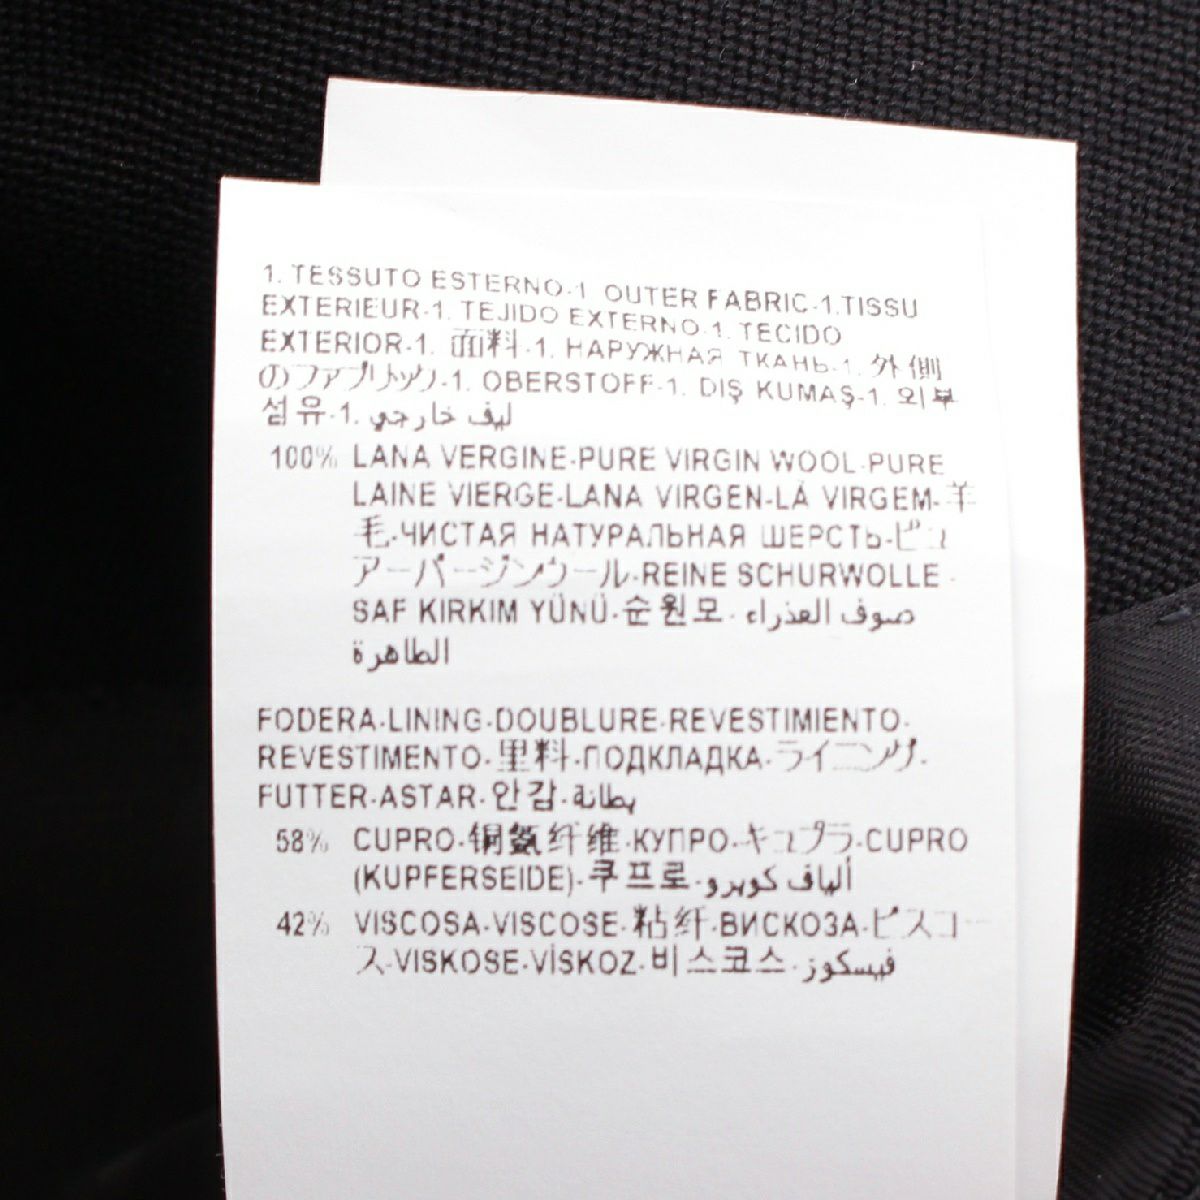 1. TESSUTO ESTERNO-1. OUTER FABRIC-1.TISSU
EXTERIEUR-1. TEJIDO EXTERNO-1. TECIDO
EXTERIOR-1. 面料-1. НАРУЖНАЯ ТКАНЬ-1. 外側
のファブリック-1. OBERSTOFF-1. DIŞ KUMAŞ-1. 외부
섬유-1. ليف خارجي
100% LANA VERGINE-PURE VIRGIN WOOL-PURE
LAINE VIERGE-LANA VIRGEN-LÃ VIRGEM-羊
毛-ЧИСТАЯ НАТУРАЛЬНАЯ ШЕРСТЬ-ピュ
アーバージンウール-REINE SCHURWOLLE-
SAF KIRKIM YÜNÜ-순원모- صوف العذراء
الطاهرة
FODERA-LINING-DOUBLURE-REVESTIMIENTO-
REVESTIMENTO-里料-ПОДКЛАДКА-ライニング-
FUTTER-ASTAR-안감-بطانة
58% CUPRO-铜氨纤维-КУПРО-キュプラ-CUPRO
(KUPFERSEIDE)-쿠프로-ألياف كوبرو
42% VISCOSA-VISCOSE-粘纤-ВИСКОЗА-ビスコー
ス-VISKOSE-VİSKOZ-비스코스-فيسكوز